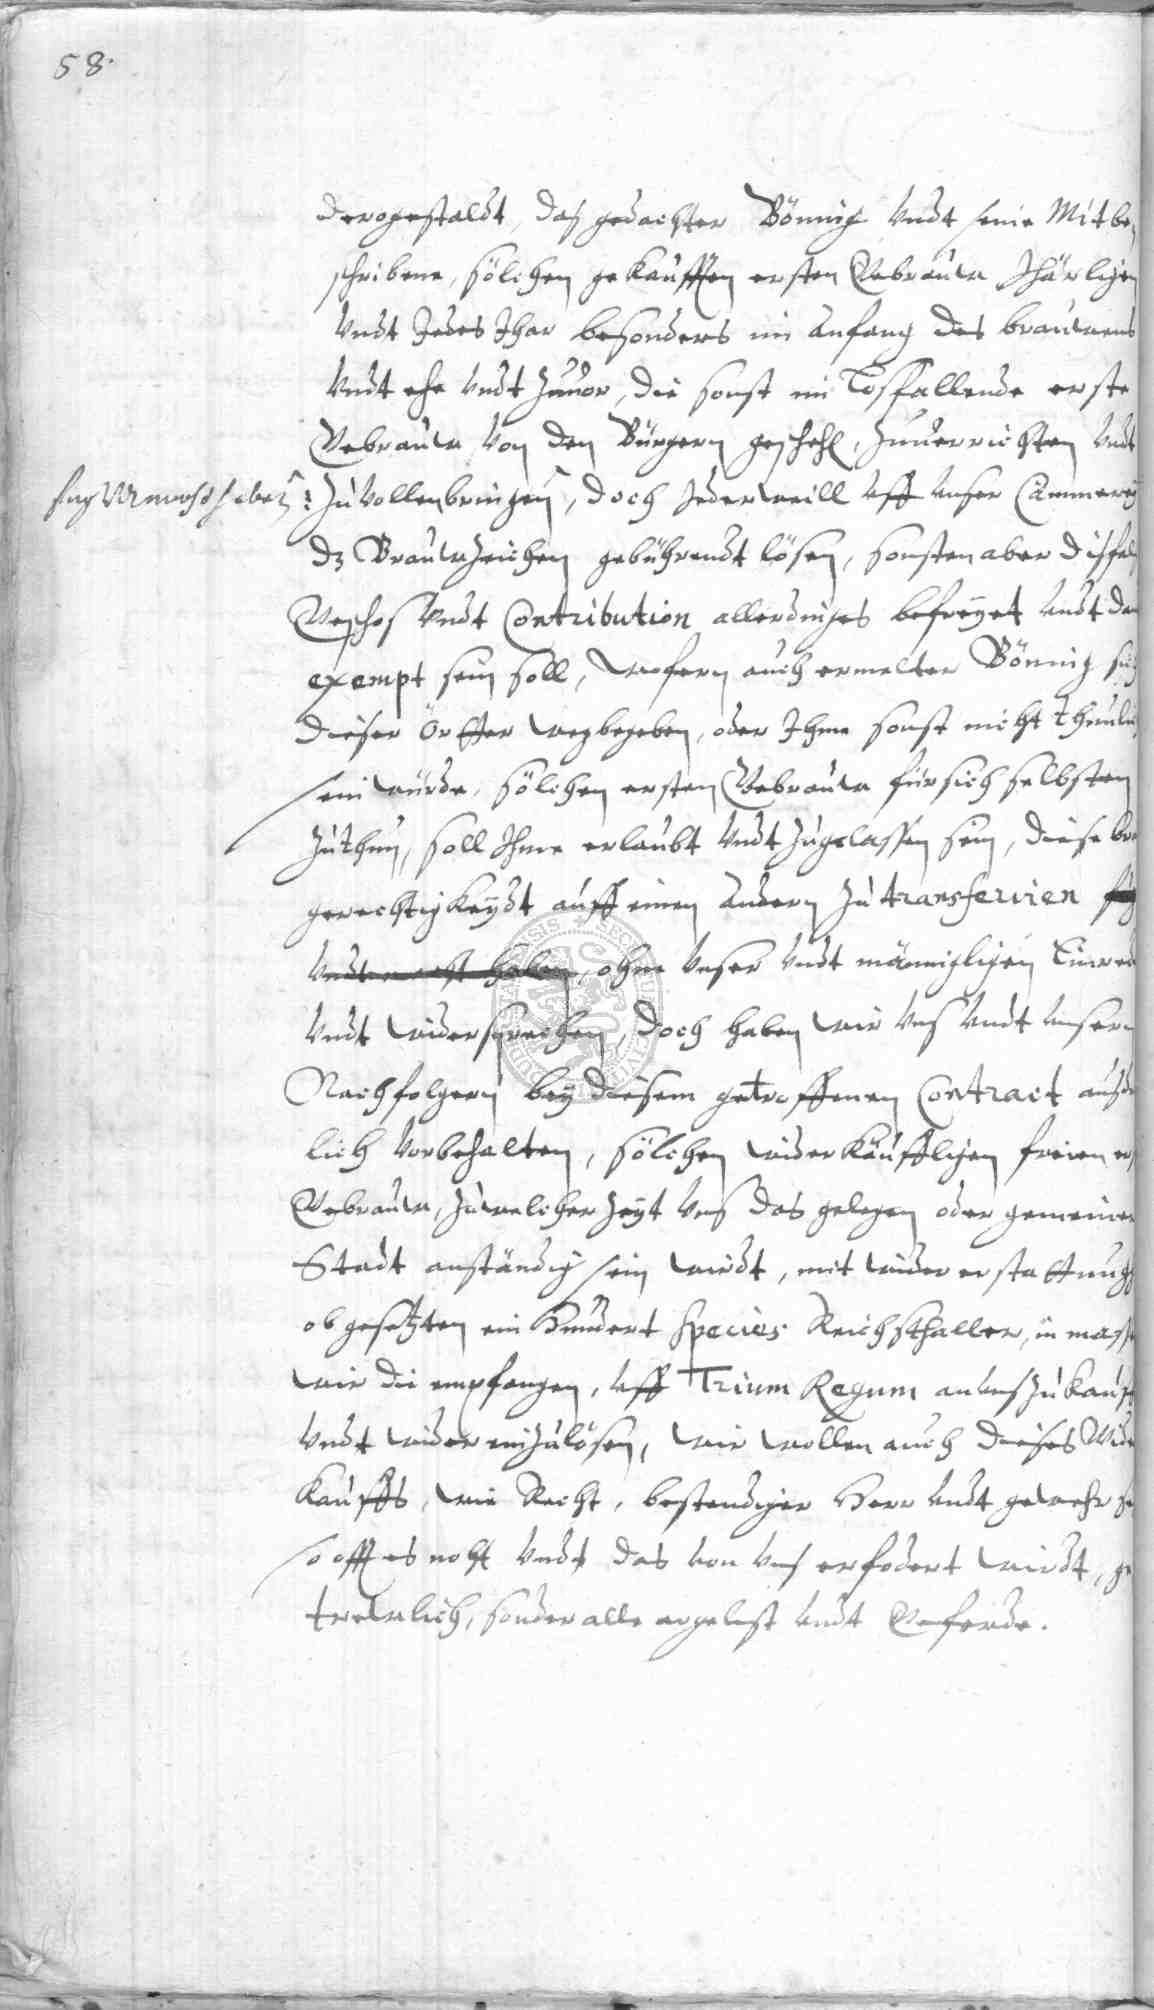 58.
dero gestaldt, das gedachter Bönnig Vndt seine Mitbe,
schribene, solchen gekaufften ersten Gebrauw Jhärligen
Vndt Jedes Jhar besonders im Anfang des brauwens
Vndt ehe Vndt Zuuor, die sonst im Losfallende erste
Gebrauw Von den Bürgern geschehe, Zuuerrichten Vndt
Zu Vollenbringen, doch Jederweill vff vnser Cämmerey
dz Brauwzeichen gebührendt lösen, sonsten aber disfals
Geschos Vndt Contribution allerdinges befreyet vndt
exempt sein soll, wofern auch ermelter Bönnig sich
dieser Örtter wegbegeben, oder Ihme sonst nicht thunlich
sein würde, solchen ersten Gebrauw für sich selbsten
Zuthun, soll Ihme erlaubt Vndt Zugelassen sein, diese
gerechtigkeydt auff einen Andern Zu transferiren
Vndt macht haben, ohne Vnser Vndt männigligen Einred
Vndt widersprechen, doch haben wir Vns Vndt Vnsern
Nachfolgern bey diesem getroffenen Contract
lich Vorbehalten, solchen widerkäuffligen freien
Gebrauw, Zu welcher Zeyt Vns das gelegen oder gemeiner
Stadt anständig sein wirdt, mit wider erstattung
obgesetzten ein Hundert Species Reichsthaller, in mass
wir die empfangen, vff Trium Regum an vns Zu kauff
Vndt wider einzulösen, wir wollen auch dieses Wider
kauffs, wie Recht, bestendiger Herr vndt gewehr
so offt es noht Vndt das von vns erfodert wirdt, ge
trewlich, sonder alle argelist vndt Geferde.